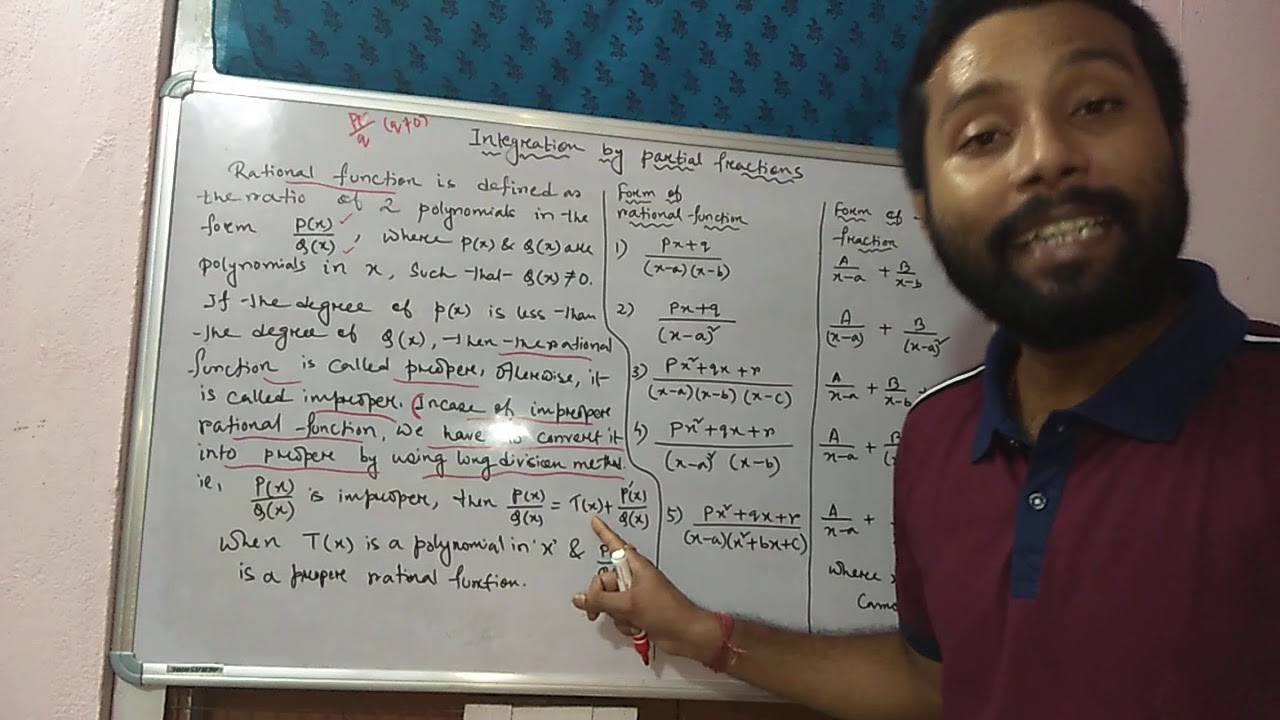 p/q (q≠0)
Integration by partial fractions
Rational function is defined as
the ratio of 2 polynomials in the
form P(x)/Q(x), where P(x) & Q(x) are
polynomials in x, such that Q(x)≠0.
If the degree of P(x) is less than
the degree of Q(x), then the rational
function is called proper, otherwise, it
is called improper. (Incase of improper
rational function, we have to convert it
into proper by using long division method.
ie, P(x)/Q(x) is improper, then P(x)/Q(x) = T(x) + P'(x)/Q(x)
When T(x) is a polynomial in 'x' &
is a proper rational function.
Form of
rational function
1) px+q/(x-a)(x-b)
2) px+q/(x-a)²
3) px²+qx+r/(x-a)(x-b)(x-c)
4) px²+qx+r/(x-a)²(x-b)
5) px²+qx+r/(x-a)(x²+bx+c)
Form of
fraction
A/x-a + B/x-b
A/(x-a) + B/(x-a)²
A/x-a + B/x-b +
A/x-a +
A/x-a +
where